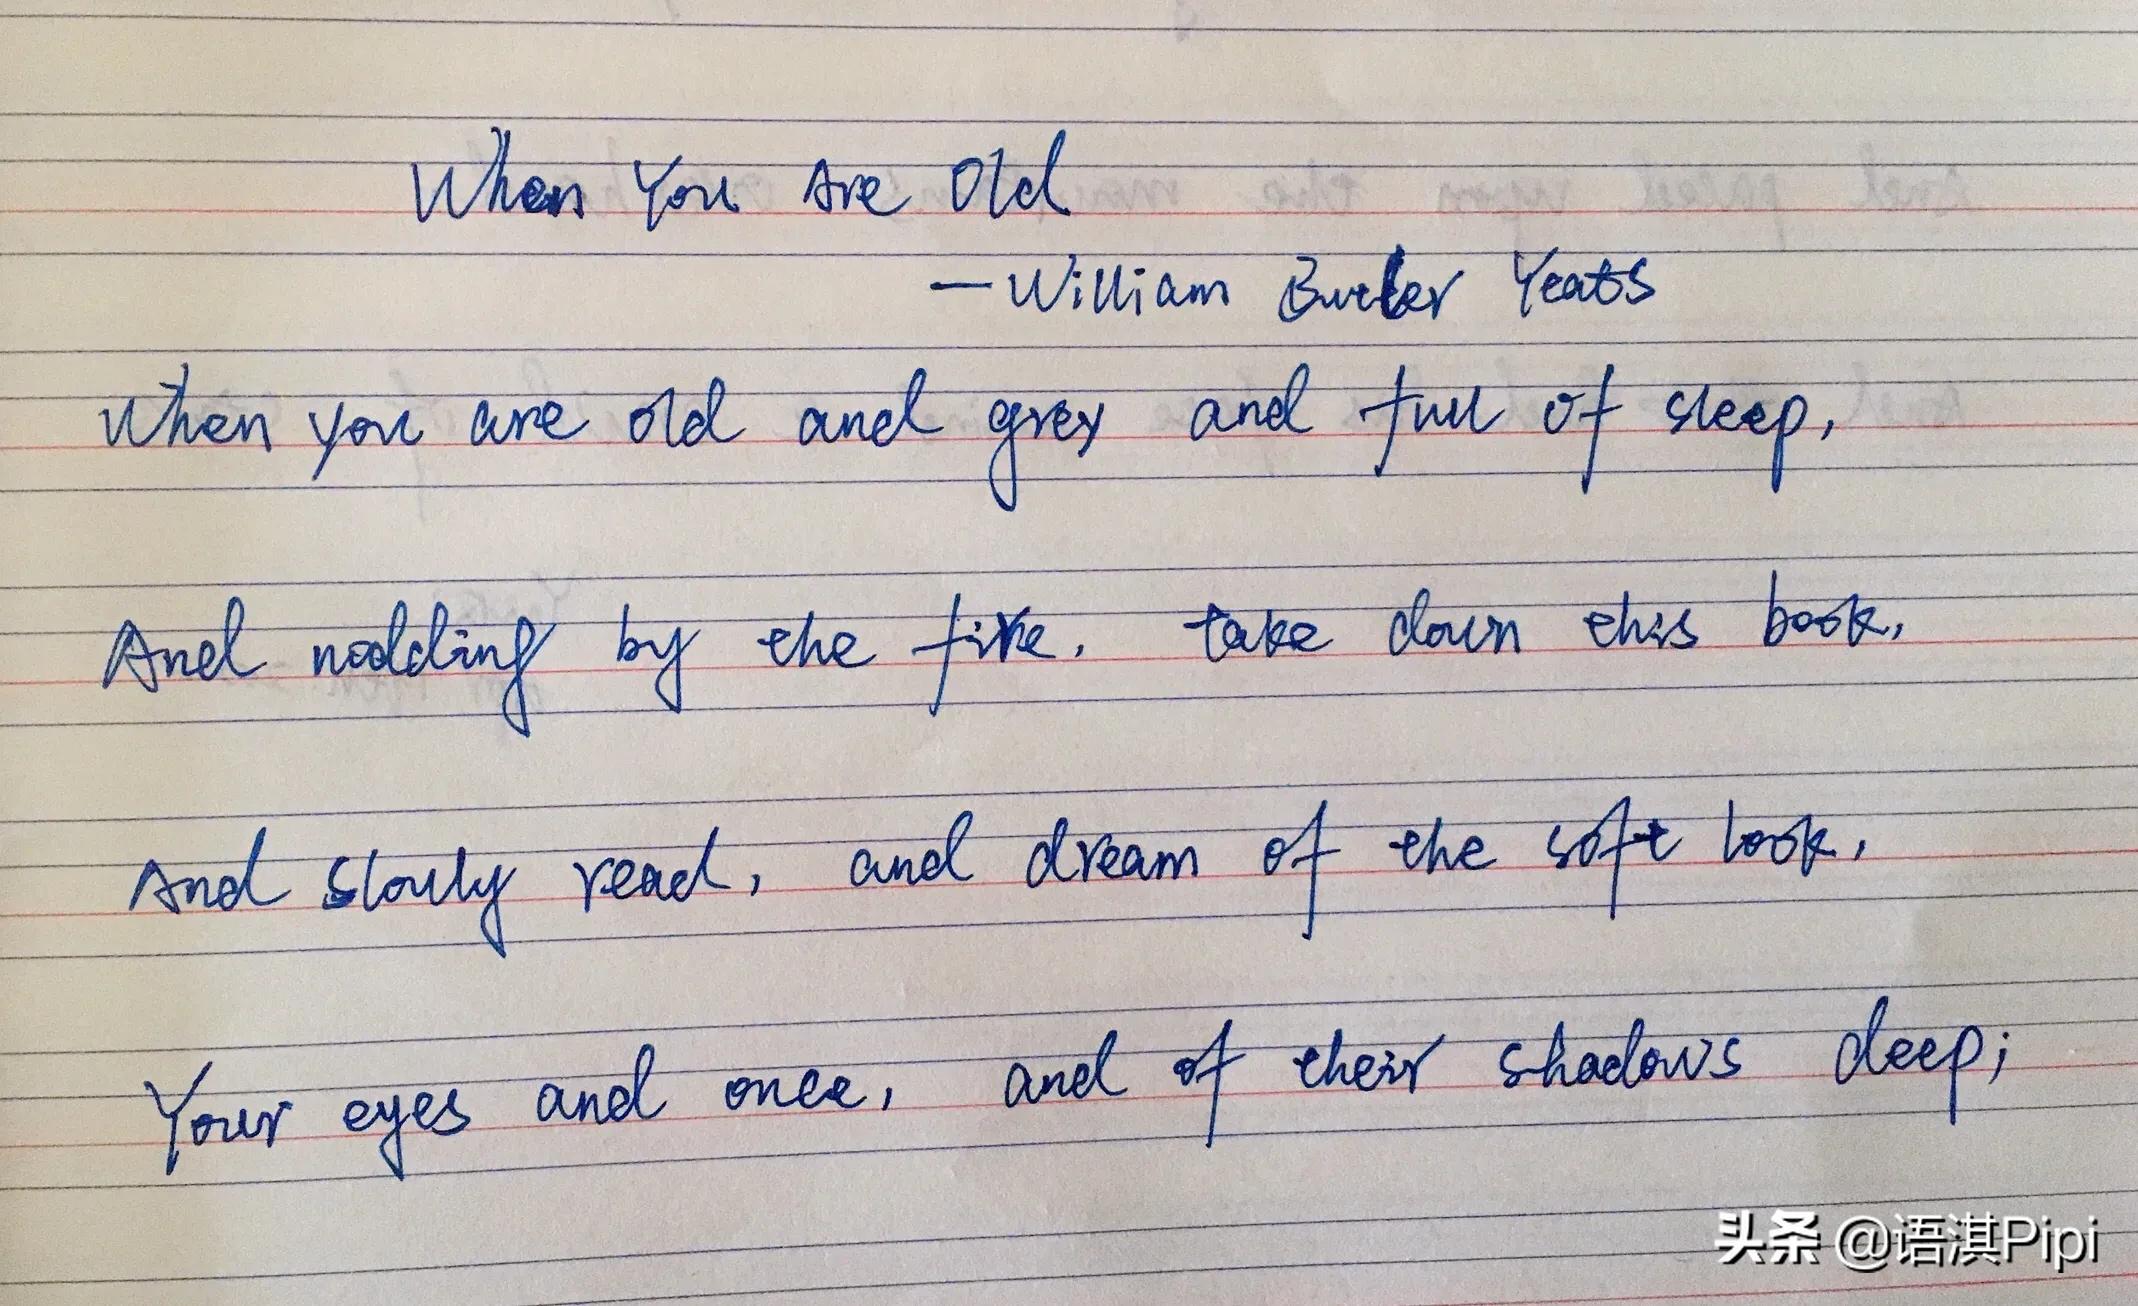 When You Are Old
—William Butler Yeats
When you are old and grey and full of sleep,
And nodding by the fire. take down this book,
And slowly read, and dream of the soft look,
Your eyes and once, and of their shadows deep;
头条 @语淇Pipi